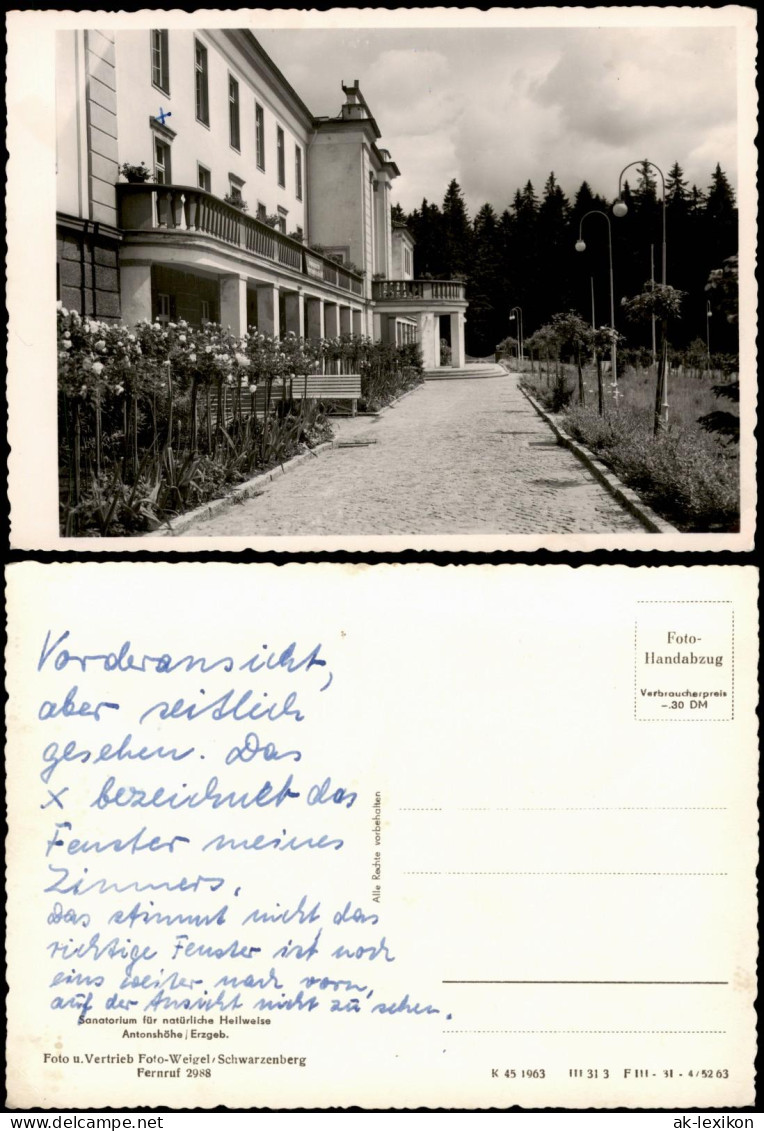 x
Vorderansicht,
aber seitlich
gesehen. Das
x bezeichnet das
Fenster meines
Zimmers.
Das stimmt nicht, das
richtige Fenster ist noch
eins weiter nach vorn,
auf der Ansicht nicht zu sehen.
Sanatorium für natürliche Heilweise
Antonshöhe/Erzgeb.
Foto u. Vertrieb Foto-Weigel/Schwarzenberg
Fernruf 2988
Alle Rechte vorbehalten
Foto-
Handabzug
Verbraucherpreis
-.30 DM
K 45 1963 III 31 3 F III - 31 - 4/52 63
ak-lexikon
ak-lexikon.com